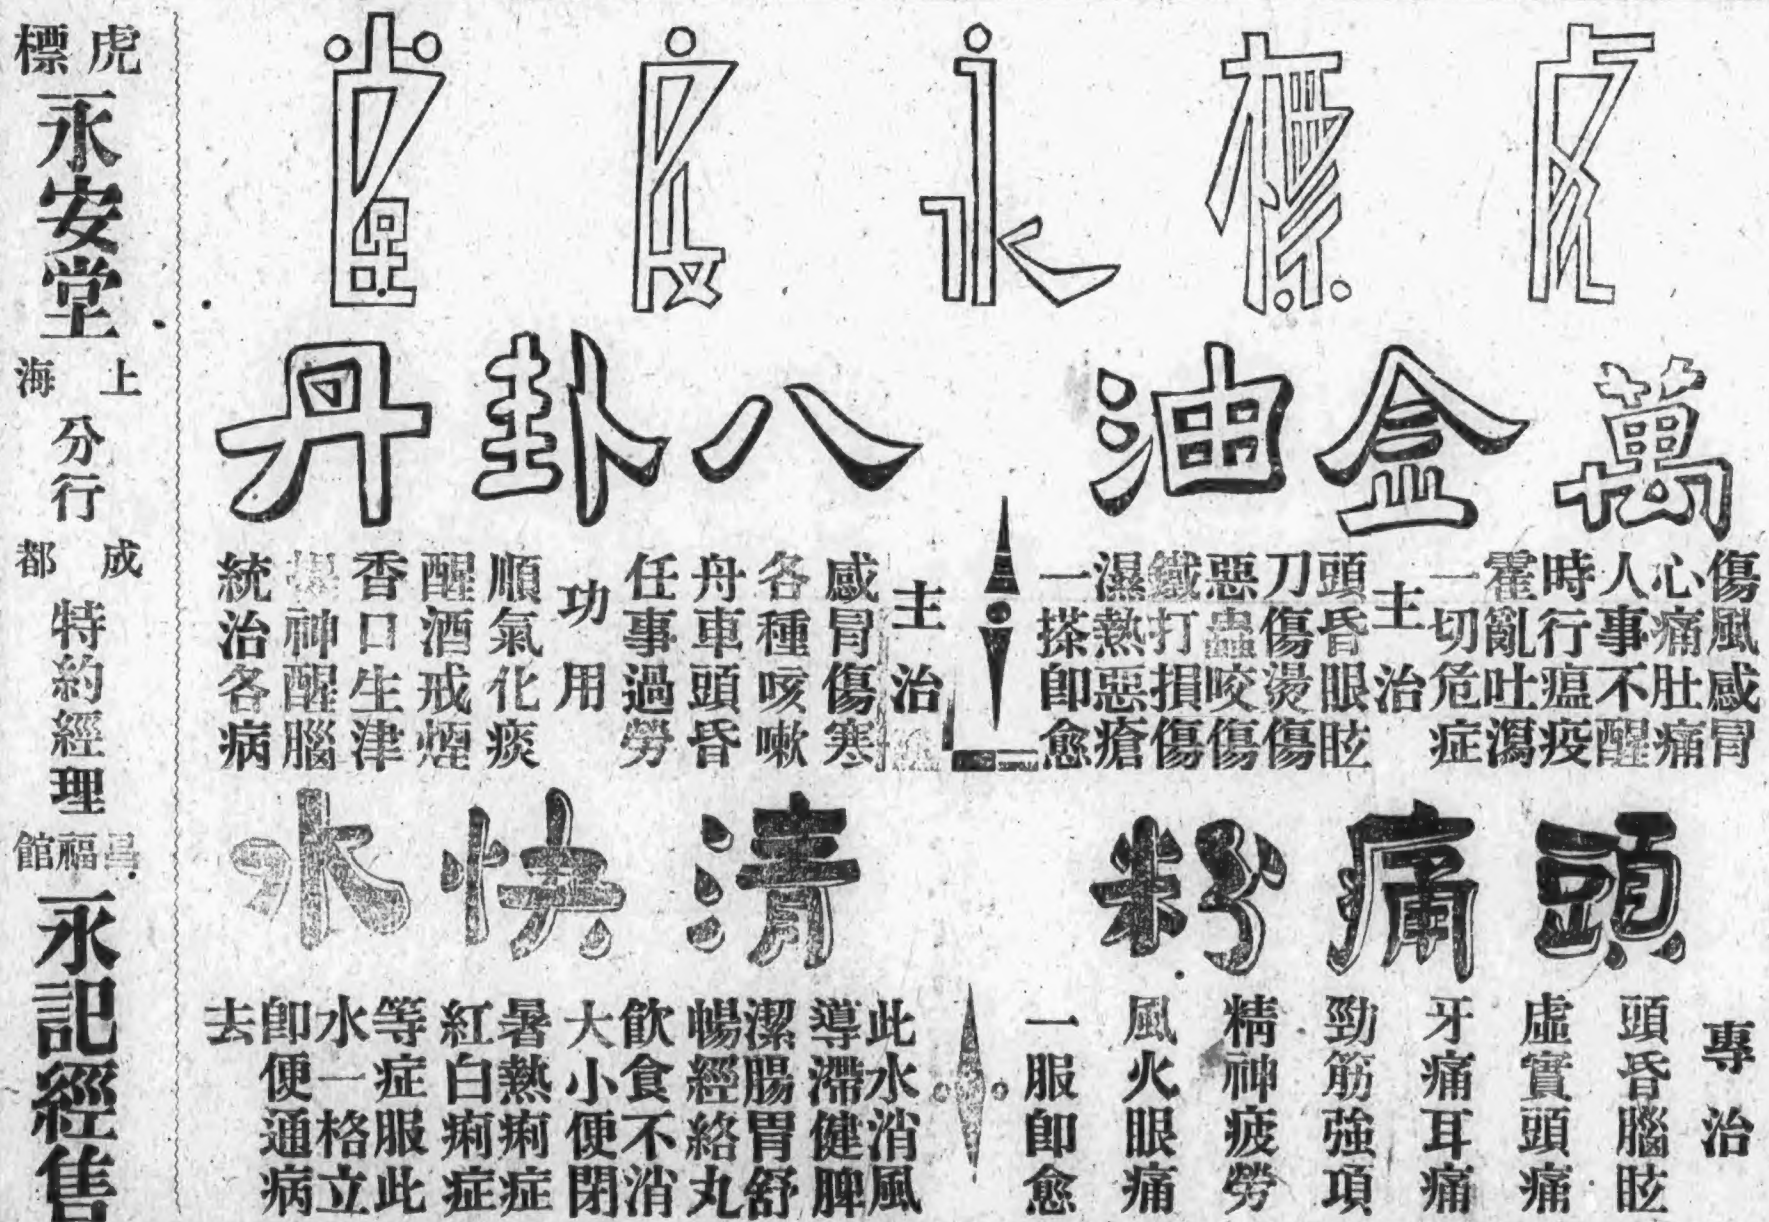 虎標永安堂
萬金油
傷風感冒
心痛肚痛
人事不醒
時行瘟疫
霍亂吐瀉
一切危症
主治
頭昏眼眩
刀傷燙傷
惡蟲咬傷
鐵打損傷
濕熱惡瘡
一搽即愈
八卦丹
主治
感冒傷寒
各種咳嗽
舟車頭昏
任事過勞
功用
順氣化痰
醒酒戒煙
香口生津
提神醒腦
統治各病
頭痛粉
專治
頭昏腦眩
虛實頭痛
牙痛耳痛
勁筋強項
精神疲勞
風火眼痛
一服即愈
清快水
此水消風
導滯健脾
潔腸胃舒
暢經絡丸
飲食不消
大小便閉
暑熱痢症
紅白痢症
等症服此
水一格立
即便通病
去
虎標
永安堂
上海
分行
成都
特約經理
福館
永記經售